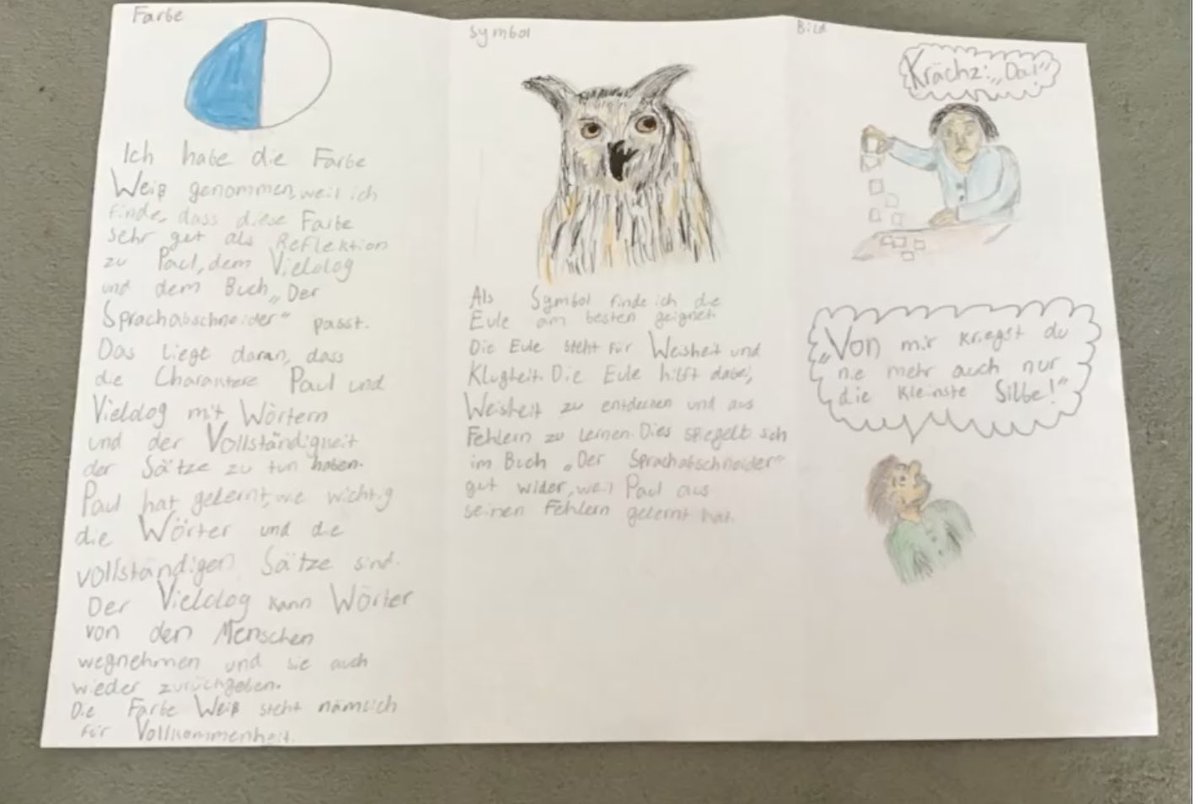 Farbe
Ich habe die Farbe
Weiß genommen, weil ich
finde, dass diese Farbe
sehr gut als Reflektion
zu Paul, dem Vielolog
und dem Buch „Der
Sprachabschneider" passt.
Das liegt daran, dass
die Charaktere Paul und
Vielolog mit Wörtern
und der Vollständigkeit
der Sätze zu tun haben.
Paul hat gelernt, wie wichtig
die Wörter und die
vollständigen Sätze sind.
Der Vielolog kann Wörter
von den Menschen
wegnehmen und sie auch
wieder zurückgeben.
Die Farbe Weiß steht nämlich
für Vollkommenheit.
Symbol
Als Symbol finde ich die
Eule am besten geeignet.
Die Eule steht für Weisheit und
Klugheit. Die Eule hilft dabei,
Weisheit zu entdecken und aus
Fehlern zu lernen. Dies spiegelt sich
im Buch „Der Sprachabschneider"
gut wider, weil Paul aus
seinen Fehlern gelernt hat.
Bild
Krächz: „Da!"
„Von mir kriegst du
nie mehr auch nur
die kleinste Silbe!"